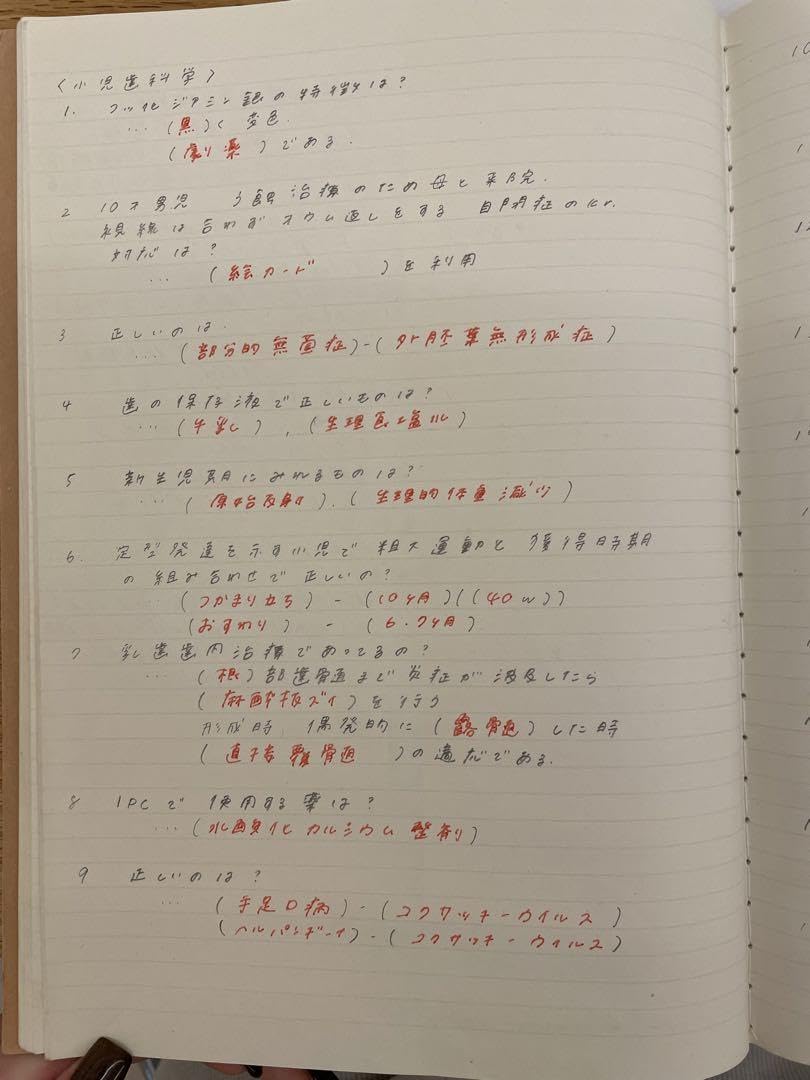 〈小児歯科学〉
1. フッ化ジアミン銀の特徴は?
… (黒)く変色.
(劇薬)である.
2 10才男児 う蝕治療のため母と来院.
視線は合わずオウム返しをする 自閉症のKr.
対応は?
… (絵カード )を利用
3 正しいのは.
… (部分的無歯症)-(外胚葉無形成症)
4 歯の保存液で正しいものは?
… (牛乳),(生理食塩水)
5 新生児期にみれるものは?
… (原始反射),(生理的体重減少)
6. 定型発達を示す小児で 粗大運動と獲得時期
の組み合わせで正しいの?
(つかまり立ち) - (10ヶ月)((40w))
(おすわり) - (6.7ヶ月)
7 乳歯歯内治療であってるの?
… (根)部歯髄まで炎症が波及したら
(麻酔抜ズイ)を行う
形成時, 偶発的に(露髄)した時
(直接覆髄 )の適応である.
8 IPCで使用する薬は?
… (水酸化カルシウム製剤)
9 正しいのは?
… (手足口病)-(コクサッキーウイルス)
(ヘルパンギーナ)-(コクサッキーウイルス)
10
1
1
12
1